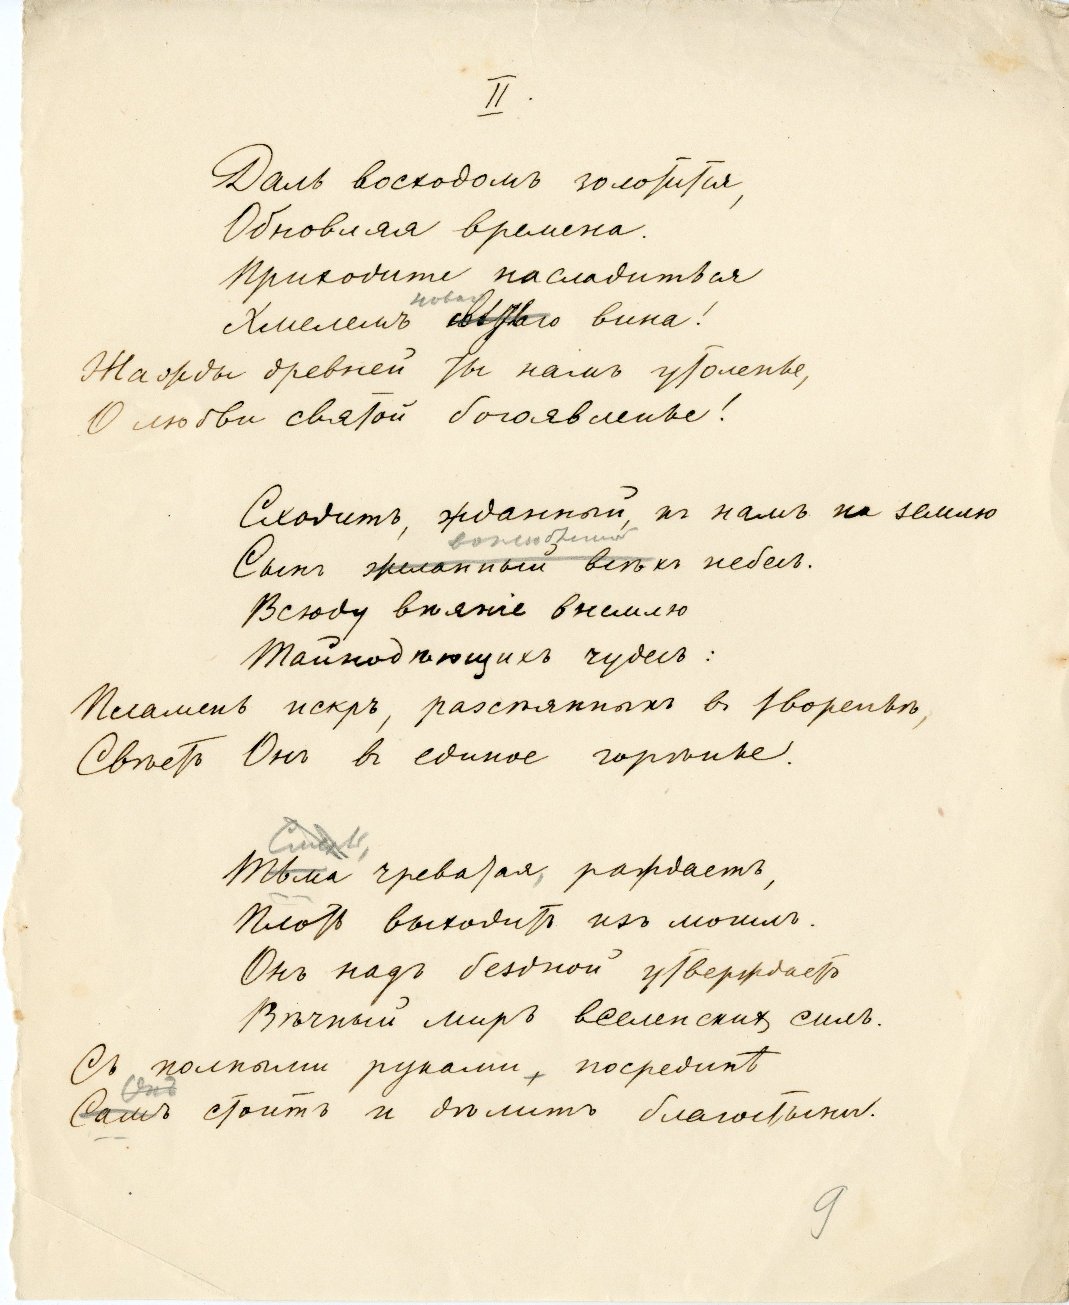 II.
Даль восходомъ золотится,
Обновляя времена.
Приходите насладиться
новаго
Хмелемъ вина!
Жажды древней ты намъ утоленье,
О любви святой богоявленье!
Сходитъ, жданный, къ намъ на землю
возлюбленный
Сынъ желанный всѣхъ небесъ.
Всюду вѣянiе внемлю
Тайнодѣющихъ чудесъ:
Пламень искръ, разсѣянныхъ въ твореньѣ,
Свѣетъ Онъ въ единое горѣнье.
Смерть,
Тьма чреватая, раждаетъ,
Плоть выходитъ изъ могилъ.
Онъ надъ бездной утверждаетъ
Вѣчный миръ вселенскихъ силъ.
Съ полными руками, посрединѣ
Онъ
Самъ стоитъ и дѣлитъ благостыни.
9